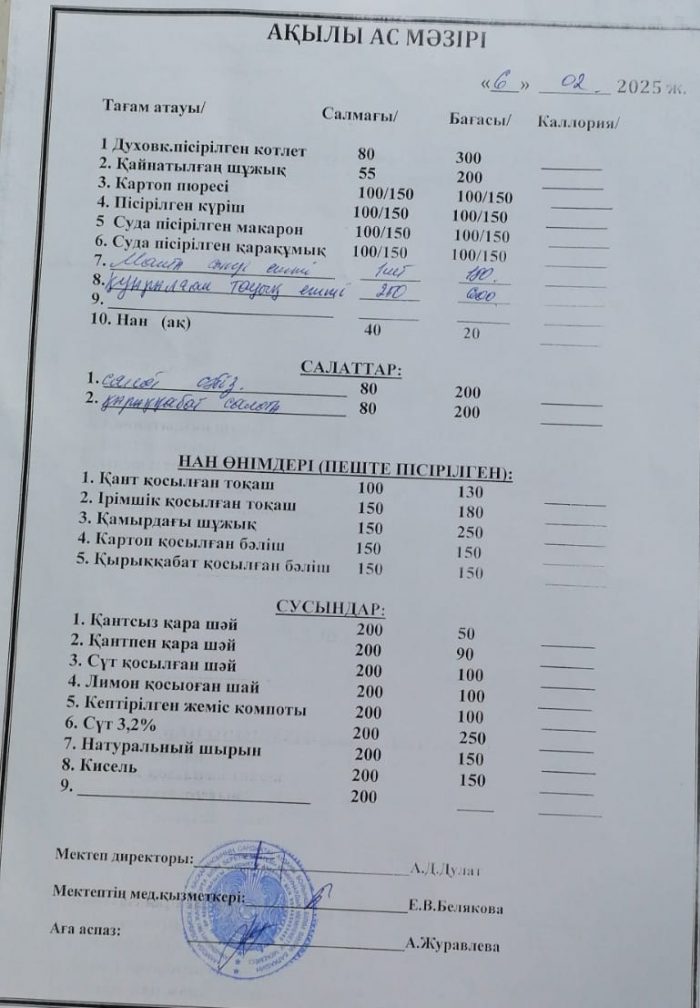 АҚЫЛЫ АС МӘЗІРІ
«6» 02. 2025 ж.
Тағам атауы/ Салмағы/ Бағасы/ Каллория/
1 Духовк.пісірілген котлет 80 300
2. Қайнатылған шұжық 55 200
3. Картоп пюресі 100/150 100/150
4. Пісірілген күріш 100/150 100/150
5 Суда пісірілген макарон 100/150 100/150
6. Суда пісірілген қарақұмық 100/150 100/150
7. еті 1шт
8. қуырылған тауық 600
9.
10. Нан (ақ) 40 20
САЛАТТАР:
1. салат 80 200
2. қырыққабат салат 80 200
НАН ӨНІМДЕРІ (ПЕШТЕ ПІСІРІЛГЕН):
1. Қант қосылған тоқаш 100 130
2. Ірімшік қосылған тоқаш 150 180
3. Қамырдағы шұжық 150 250
4. Картоп қосылған бәліш 150 150
5. Қырыққабат қосылған бәліш 150 150
СУСЫНДАР:
1. Қантсыз қара шәй 200 50
2. Қантпен қара шәй 200 90
3. Сүт қосылған шәй 200 100
4. Лимон қосыоған шай 200 100
5. Кептірілген жеміс компоты 200 100
6. Сүт 3,2% 200 250
7. Натуральный шырын 200 150
8. Кисель 200 150
9. 200
Мектеп директоры: А.Д.Дулат
Мектептің мед.қызметкері: Е.В.Белякова
Аға аспаз: А.Журавлева